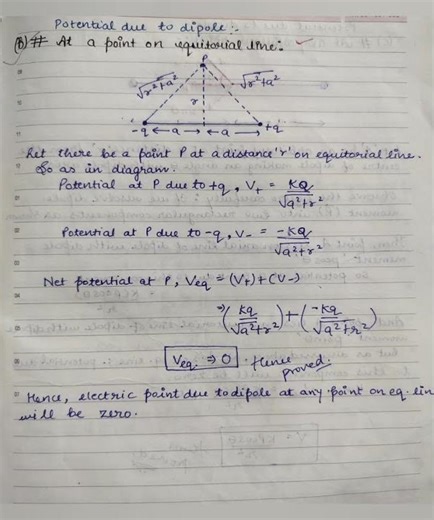 Potential due to dipole :-
(B) # At a point on equitorial line:
P
√r²+a²
√r²+a²
r
-q ← a → ← a → +q
Let there be a point P at a distance 'r' on equitorial line.
So as in diagram.
Potential at P due to +q, V+ = KQ/√a²+r²
Potential at P due to -q, V- = -KQ/√a²+r²
Net potential at P, Veq = (V+) + (V-)
⇒ (Kq/√a²+r²) + (-Kq/√a²+r²)
Veq ⇒ 0 . Hence
proved.
Hence, electric point due to dipole at any point on eq. lin
will be zero.